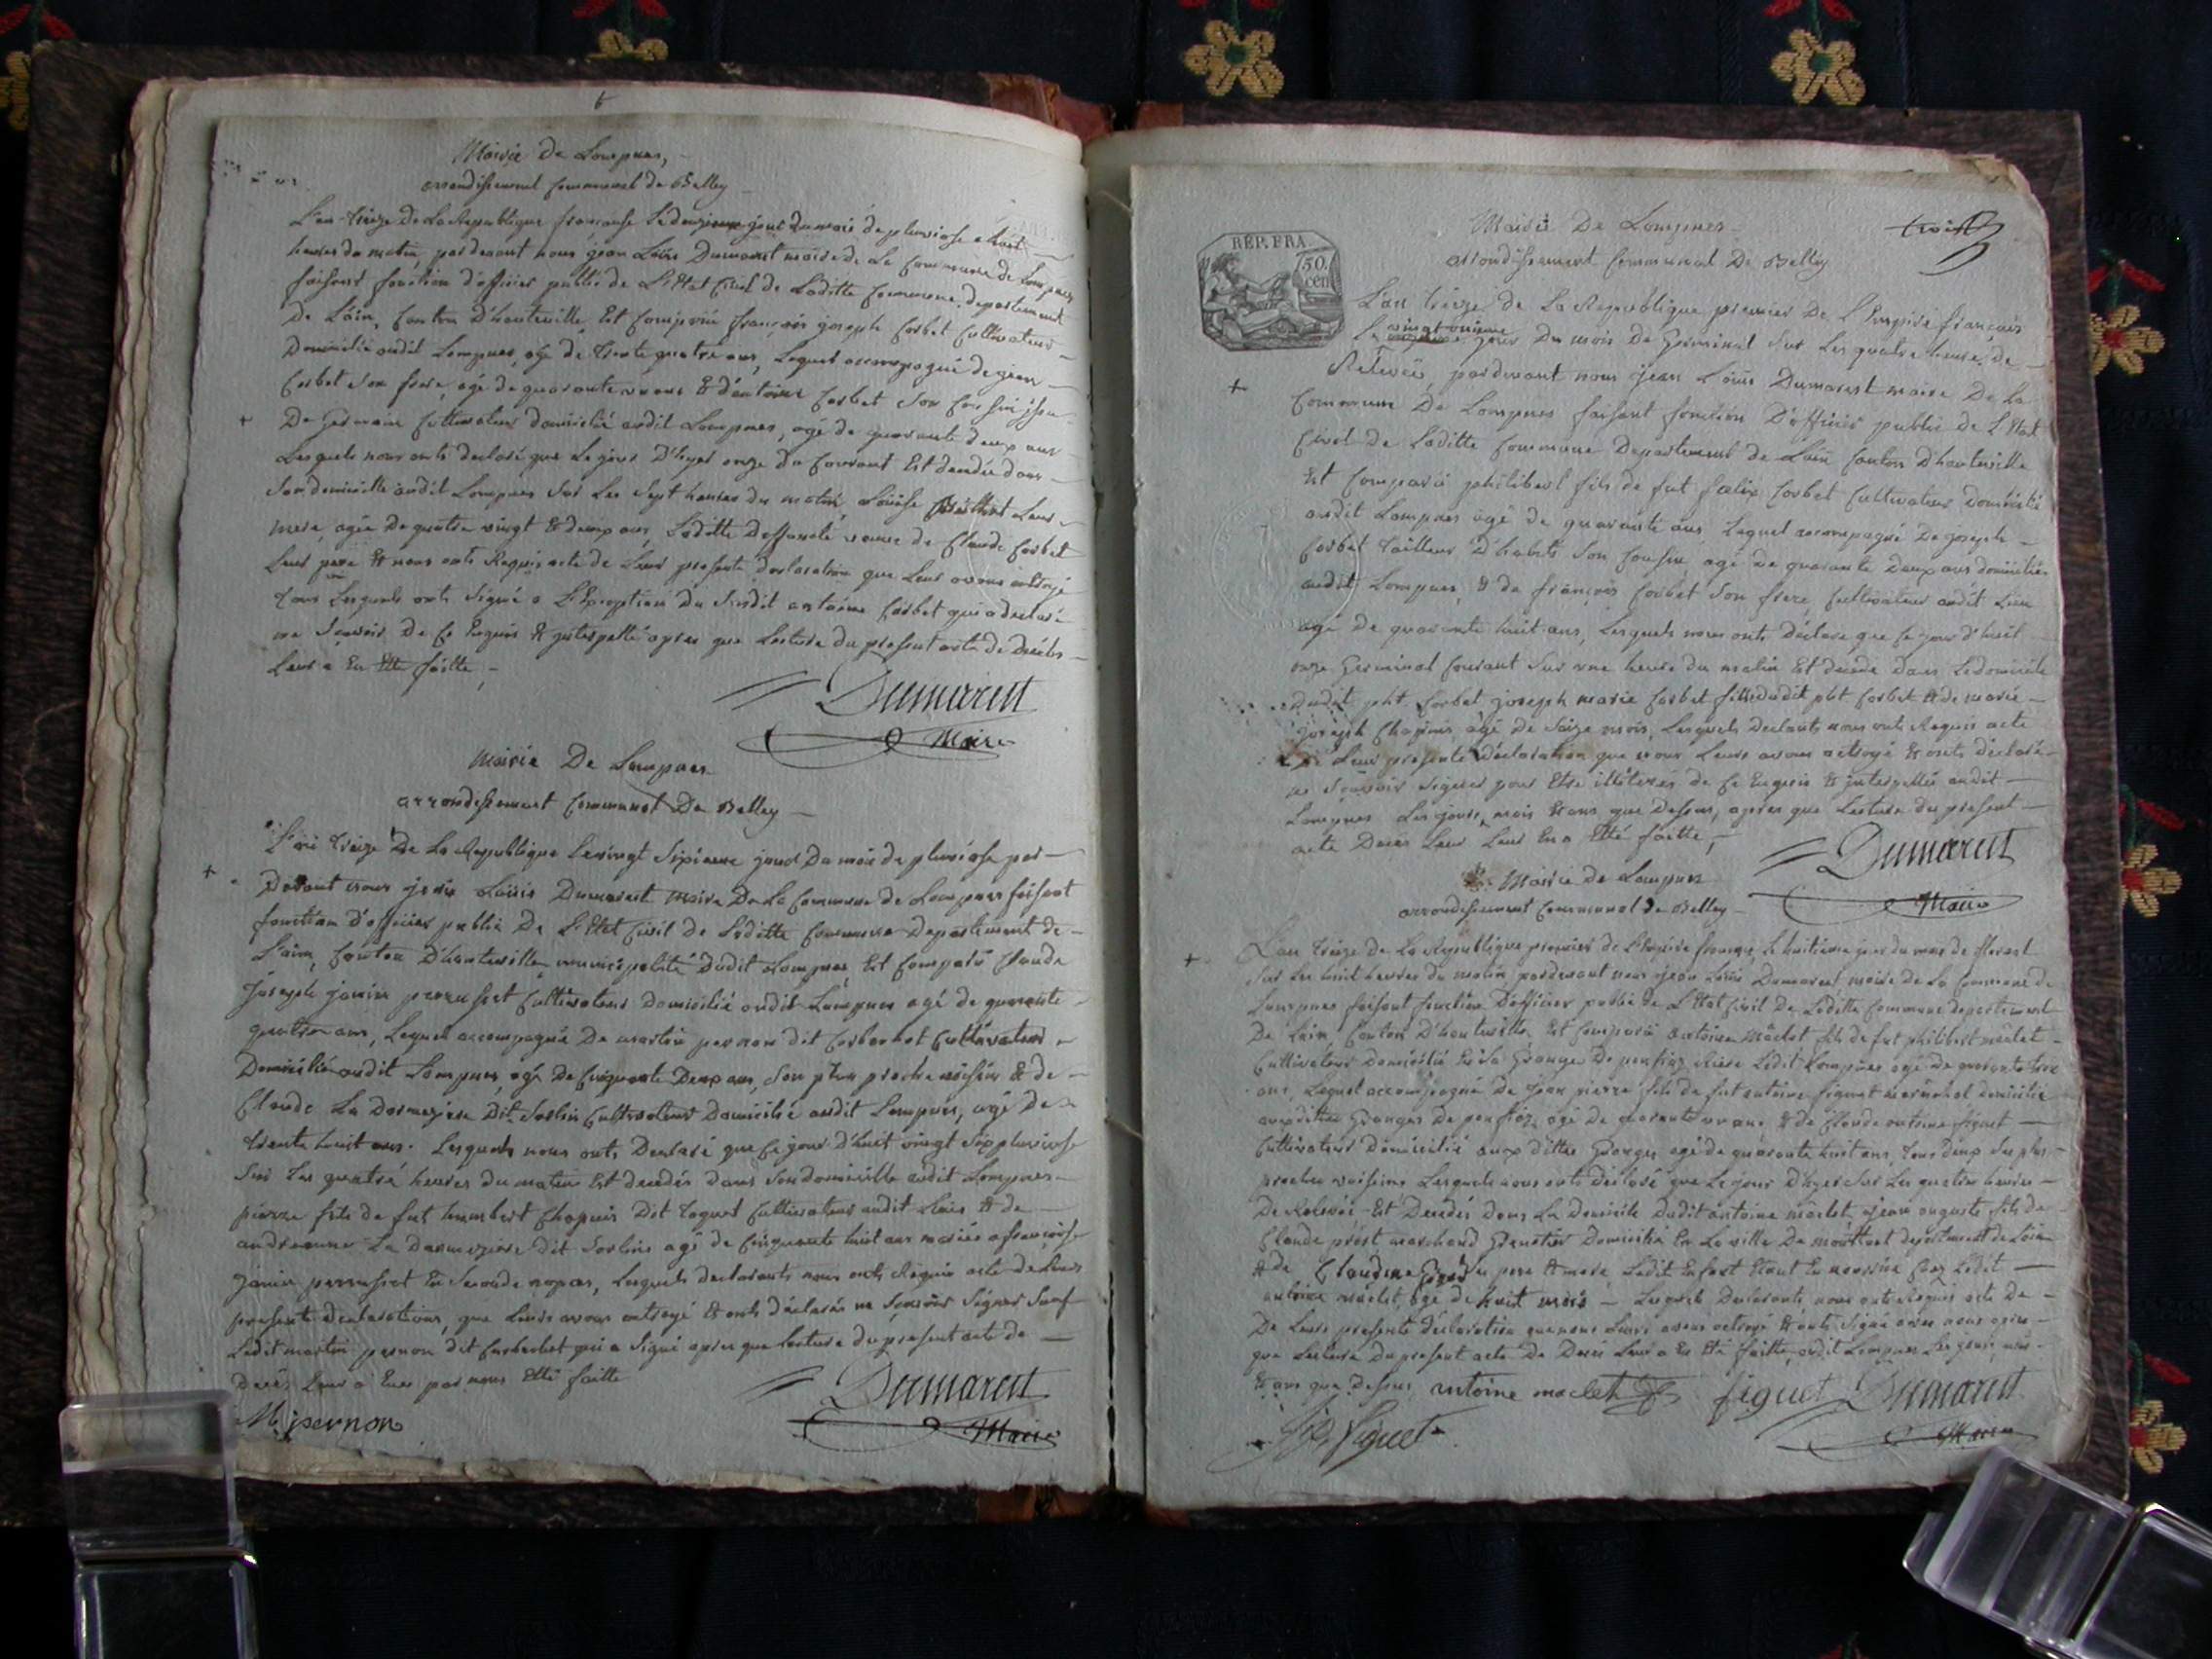 Mairie De Lompnes,
arrondissement Communal de Belley
L'an treize De La Republique francaise Le douzieme jour du mois de pluviose a huit
heures du matin, pardevant nous jean Loüis Dumarest maire de La Commune de Lompnes
faisant fonction d'officier public de L'Etat Civil de Laditte Commune departement
De Lain, Canton D'hauteville, Est Comparu françois joseph Corbet Cultivateur
Domicilié audit Lompnes, agé de trente quatre ans, Lequel accompagné de jean
Corbet Son frere, agé de quarante ans & d'antoine Corbet Son Cousin issu
De germain Cultivateur domicilié audit Lompnes, agé de quarante deux ans
Lesquels nous onts declaré que Le jour D'hyer onze du Courant Est decedée dans
Son domicille audit Lompnes Sur Les Sept heures du matin, Loüise Leur
mere, agée de quatre vingt & deux ans, Laditte Deffuncte veuve de Claude Corbet
Leur pere & nous onts Requis acte de Leur presente declaration que Leur avons octroyé
Tous Lesquels onts Signé a L'Exception du Susdit antoine Corbet qui a declaré
ne Sçavoir De Ce Enquis & interpellé apres que Lecture du present acte de Decès
Leur a En Eté faitte,
Dumarest
Maire
Mairie De Lompnes
arrondissement Communal De Belley
L'an treize De La Republique Le vingt Sixieme jour Du mois de pluviose par
Devant nous jean Loüis Dumarest maire De La Commune de Lompnes faisant
fonction d'officier public De L'Etat Civil de Laditte Commune Departement de
L'ain, Canton D'hauteville, municipalité Dudit Lompnes, Est Comparu Claude
joseph janin perrusset Cultivateur Domicilié audit Lompnes agé de quarante
quatre ans, Lequel accompagné De martin pernon dit Corberbet Cultivateur
Domicilié audit Lompnes, agé De Cinquante Deux ans, Son plus proche voisin & de
Claude La Darmezière Dit Sorlin Cultivateur Domicilié audit Lompnes, agé De
trente huit ans. Lesquels nous onts Declaré que Ce jour d'huit vingt Six pluviose
Sur Les quatre heures du matin Est decedés dans Son domicille audit Lompnes
pierre fils de fut humbert Chapuis Dit toquet Cultivateur audit Lieu & de
andreanne La Darmezière dit Sorlin agé de Cinquante huit ans mariés a francoise
janin perrusset En Seconde nopces, Lesquels declarants nous onts Requis acte de Leur
presente declaration, que Leurs avons octroyé & onts declarés ne Sçavoir Signer Sauf
Ledit martin pernon dit Corberbet qui a Signé apres que Lecture du present acte de
Decès Leur a Eues par nous Etté faitte
M pernon
Dumarest
Maire
trois
REP. FRA
50. cen
Mairie De Lompnes
arrondissement Communal De Belley
L'an treize de La Republique premier De L'Empire français
Le vingt onzieme jour Du mois De Germinal Sur Les quatre heures de
Relevée, pardevant nous jean Loüis Dumarest maire De La
Commune De Lompnes faisant fonction D'officier public de L'Etat
Civil de Laditte Commune Departement de Lain Canton D'hauteville
Est Comparu philibert fils de fut fœlix Corbet Cultivateur Domicilié
audit Lompnes agé de quarante ans Lequel accompagné De joseph
Corbet Tailleur D'habits Son Cousin agé De quarante Deux ans domicilié
audit Lompnes, & de françois Corbet Son frere, Cultivateur audit Lieu
agé De quarante huit ans, Lesquels nous onts Déclaré que Ce jour d'huit
onze Germinal Courant Sur une heure du matin Est decedé Dans Le domicile
Dudit pht Corbet joseph marie Corbet fils dudit pht Corbet & de marie
joseph Chapuis agé De Saize mois, Lesquels Declarants nous ont Requis acte
De Leur presente Déclaration que nous Leurs avons octroyé & onts déclaré
ne Sçavoir Signer pour Etre illéterés de Ce Enquis & interpellés audit
Lompnes Les jour, mois & ans que Dessus, apres que Lecture du present
acte Deces Leur Leur En a Etté faitte,
Dumarest
Maire
Mairie de Lompnes
arrondissement Communal de Belley
L'an treize de La Republique premier de L'Empire français, Le huitieme jour du mois de floreal
Sur Les huit heures du matin pardevant nous jean Loüis Dumarest maire de La Commune de
Lompnes faisant fonction D'officier public de L'Etat Civil De Laditte Commune departement
De Lain, Canton D'hauteville Est Comparu antoine Maclet fils de fut philibert maclet
Cultivateur Domicilié En La Grange De Rière Ledit Lompnes agé de quarante trois
ans, Lequel accompagné De Jean pierre fils de fut antoine figuet marechal domicilié
auxdittes Granges De agé de quarante un ans, & de Claude antoine figuet
Cultivateur Domicilié aux dittes Granges agé de quarante huit ans, tous deux Ses plus
proches voisins Lesquels nous onts déclaré que Le jour D'hyer Sur Les quatre heures
De Relevée Est Decedés Dans La Domicile Dudit antoine maclet, jean auguste fils de
Claude prost marchand Domicilié En La ville De departement de Lain
& de Claudine pere & mere, Ledit Enfant Etant En nourrice Chez Ledit
antoine maclet, agé de huit mois — Lesquels Declarants nous onts Requis acte De
De Leurs presente déclaration que nous Leurs avons octroyé & onts Signé avec nous apres
que Lecture Du present acte De Deces Leur a En Eté faitte, audit Lompnes Les jour, mois
& ans que Dessus antoine maclet figuet Dumarest
figuet
Maire